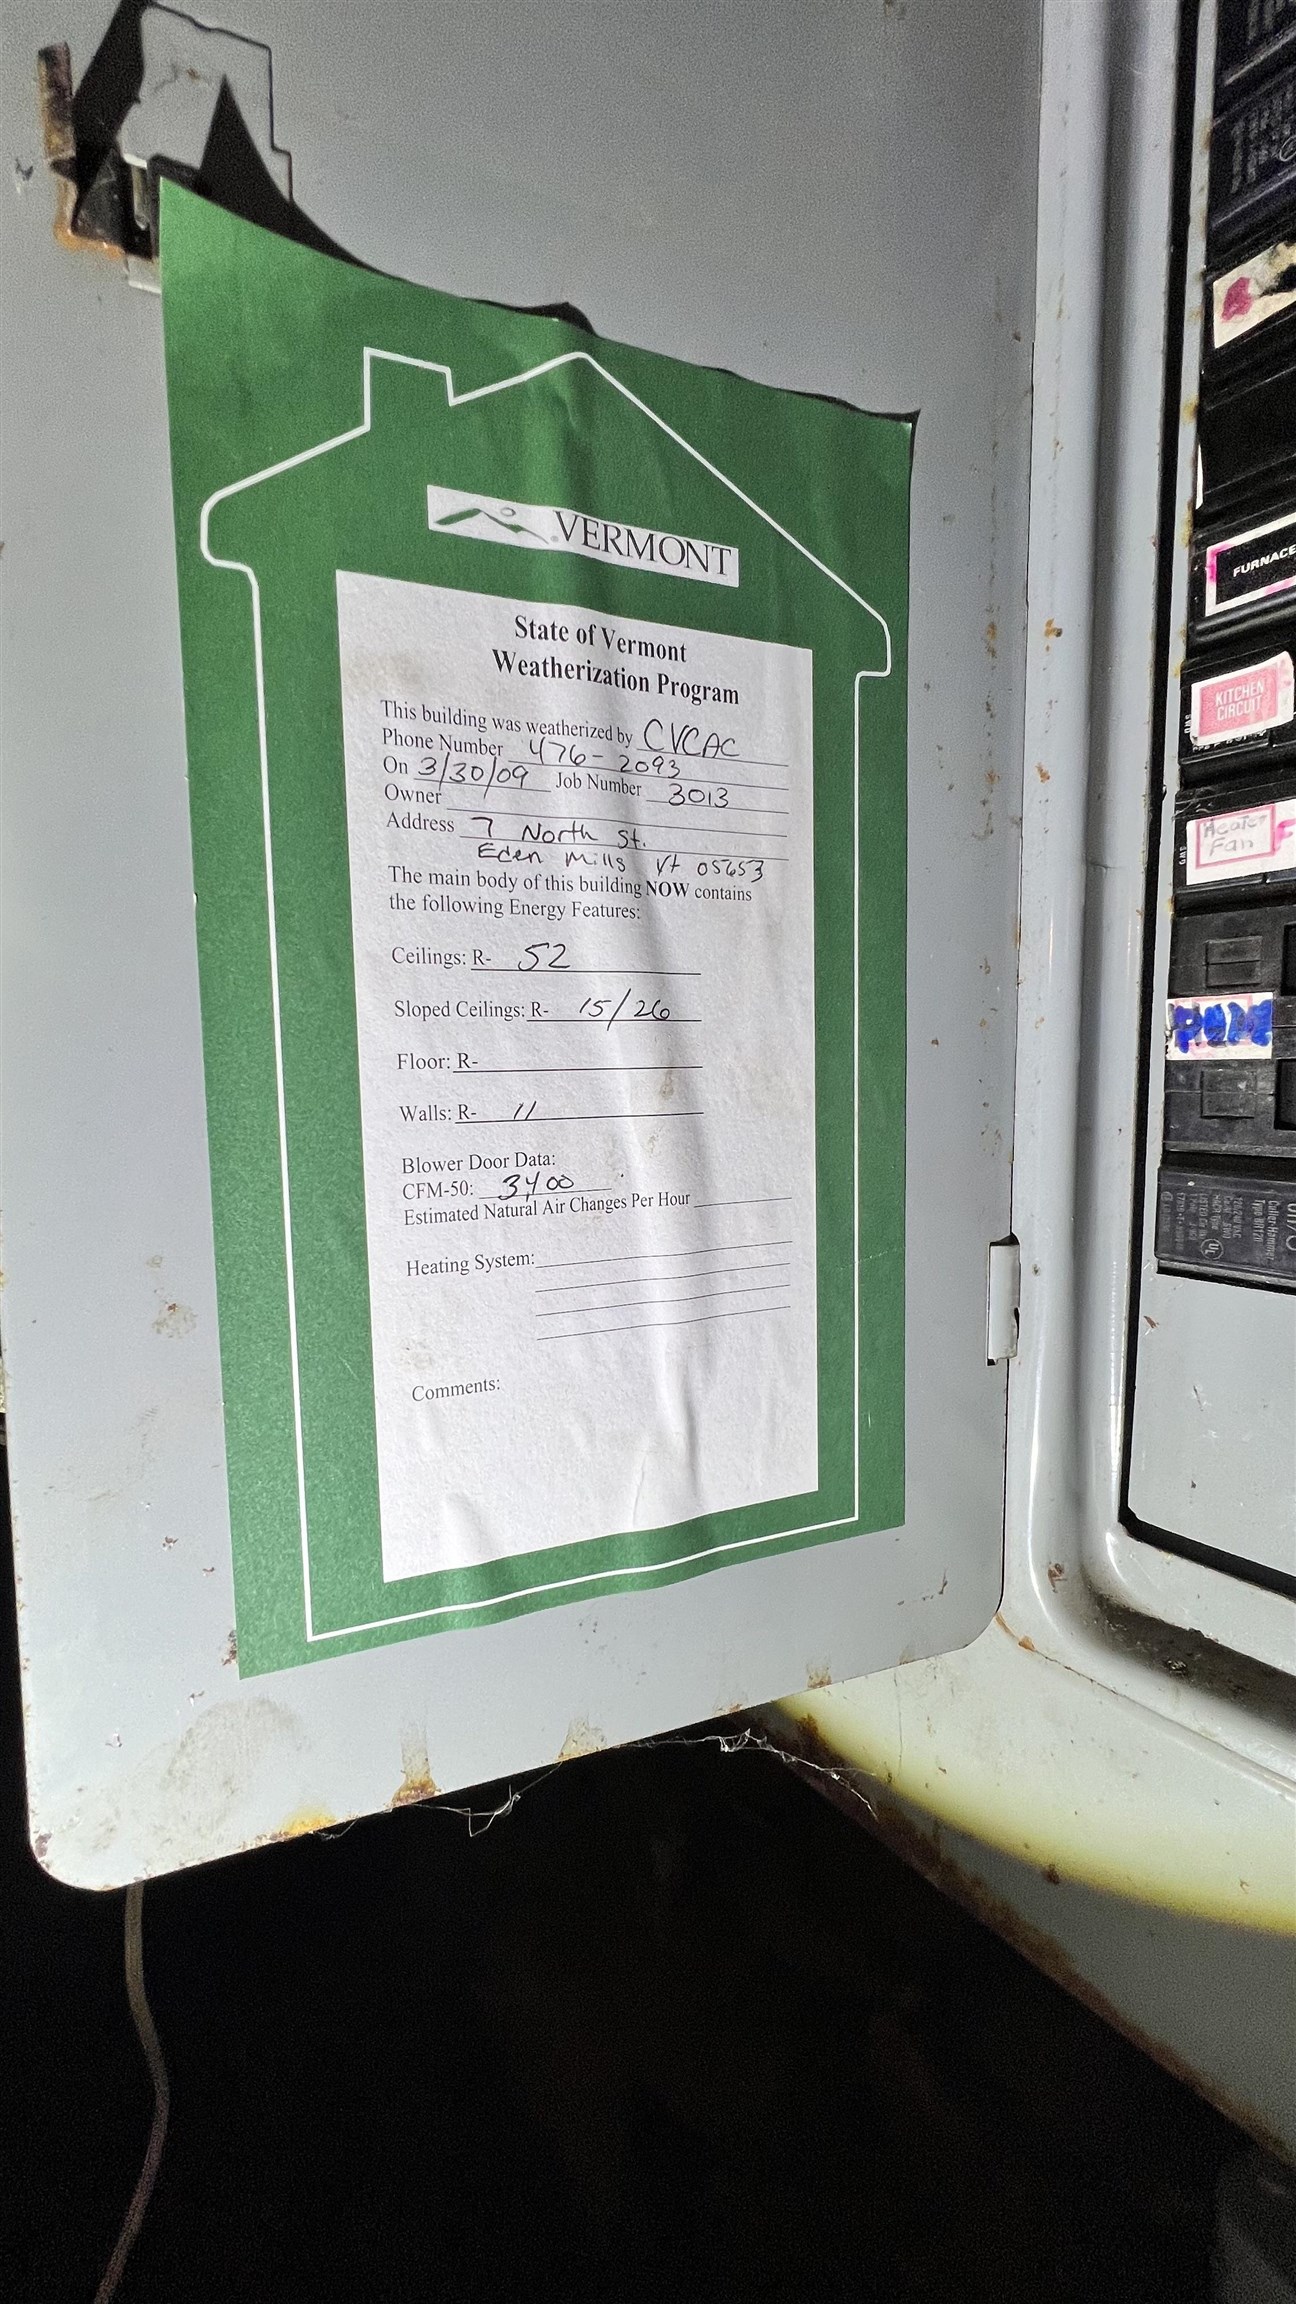 VERMONT
State of Vermont
Weatherization Program
This building was weatherized by CVCAC
Phone Number 476-2093
On 3/30/09 Job Number 3013
Owner
Address 7 North St.
Eden Mills Vt 05653
The main body of this building NOW contains
the following Energy Features:
Ceilings: R- 52
Sloped Ceilings: R- 15/26
Floor: R-
Walls: R- 11
Blower Door Data:
CFM-50: 3400
Estimated Natural Air Changes Per Hour
Heating System:
Comments:
FURNACE
KITCHEN
CIRCUIT
Heater
Fan